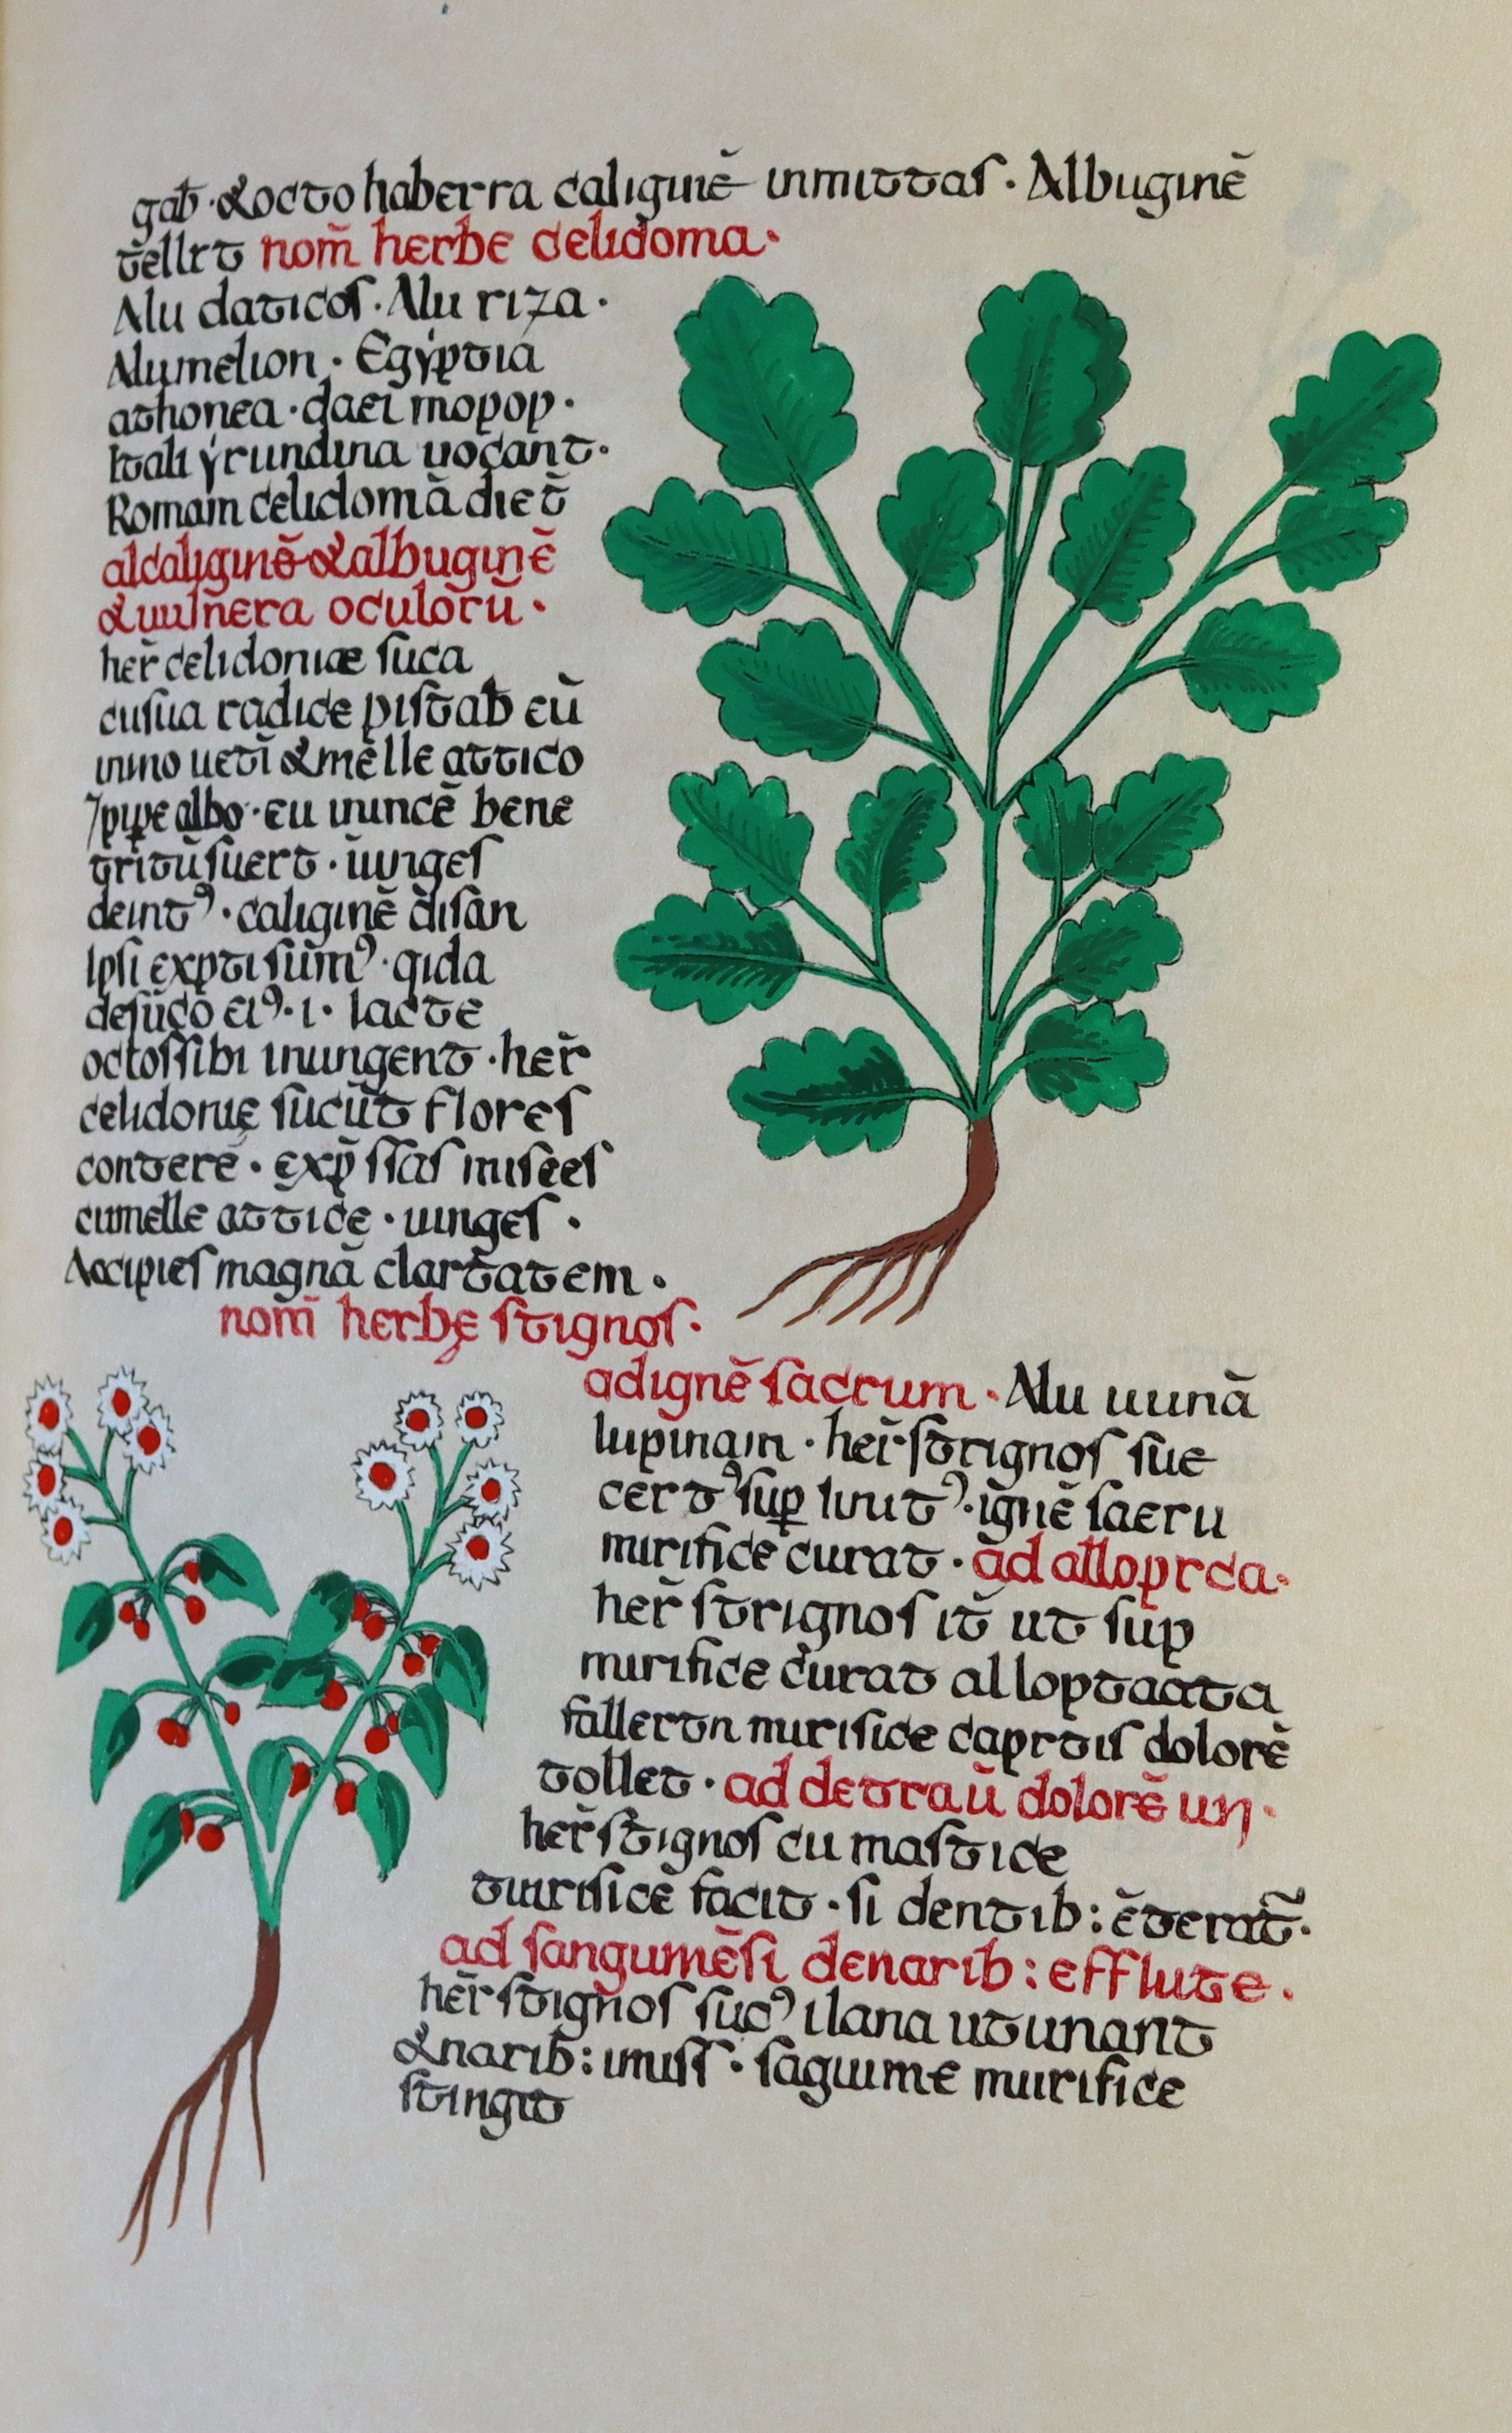 gab̄ · & octo haberra caliginē inmittas · Albuginē
t̄ellrt nom̄ herbe celidoma ·
Alu daticos · Alu riza ·
Alumelion · Egyptia
athonea · daei mopop ·
Itali yrundina uocant ·
Romain celidomā diet̄
alcaliginē & albuginē
& uulnera oculorū ·
her̄ celidoniæ suca
cusua radice pistab̄ cū
inino uetī & melle attico
⁊ pipe albo · cu inincē bene
tritū fuert · iunges
deintꝰ · caliginē disān
Ipsi exptisum̄ꝰ · qida
desūco eiꝰ · i · lacte
octossibi inungent · her̄
celidonie sucūt flores
conterē · exp̄ssas misees
cumelle attice · uinges ·
Accipies magnā clart̄atem ·
nom̄ herbę stignos ·
adignē sacrum · Alu uunā
lupinam · her̄ strignos sue
certꝰ sup linitꝰ · ignē saeru
mirifice curat · ad alloprca ·
her̄ strignos it̄ ut sup
mirifice curat alloptaata
fallertn mirifice caprtis dolorē
tollet · ad detraū dolorē un ·
her̄ stignos cu mastice
tmirificē facit · si dentib: ēterat̄ ·
ad sangumēsi denarib: efflute ·
her̄ stignos sucꝰ ilana utunant
& narib: imiss · saguime mirifice
stingit